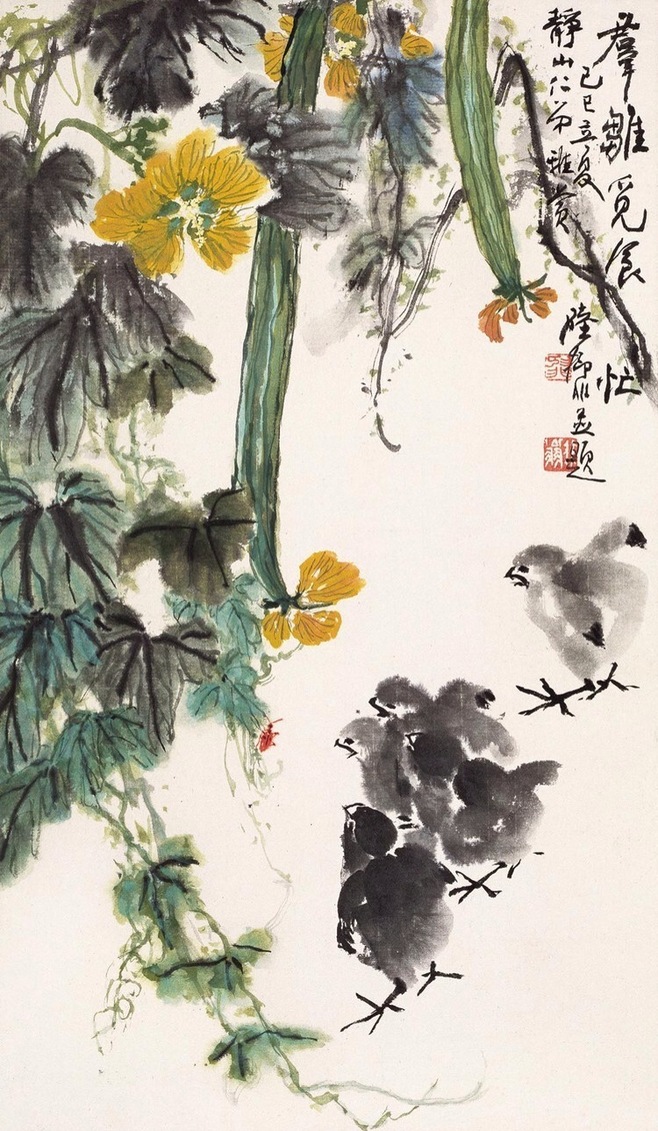 羣雛覓食忙
己巳立夏
靜山仁弟雅賞
陸抑非並題